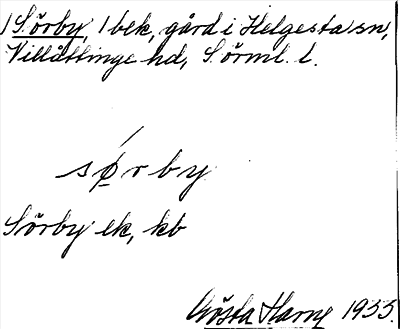 Sörby, 1 bek, gård i Helgesta sn,
Villåttinge hd, Sörml. l.
sǿrby
Sörby ek, kb
Gösta Harne 1933.